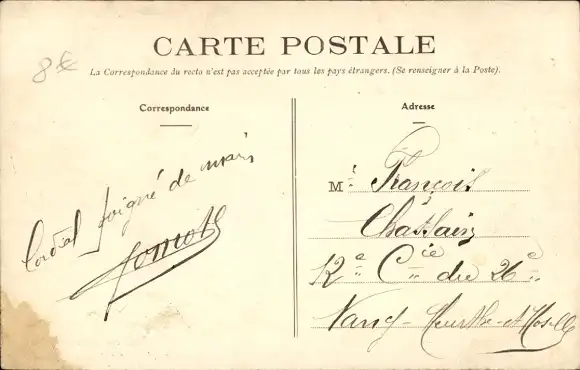 8€
CARTE POSTALE
La Correspondance du recto n'est pas acceptée par tous les pays étrangers. (Se renseigner à la Poste).
Correspondance
Cordial poigné de main
Adresse
Mr François
Chatlain
12e Cie du 26e
Nancy - Meurthe-et-Moselle